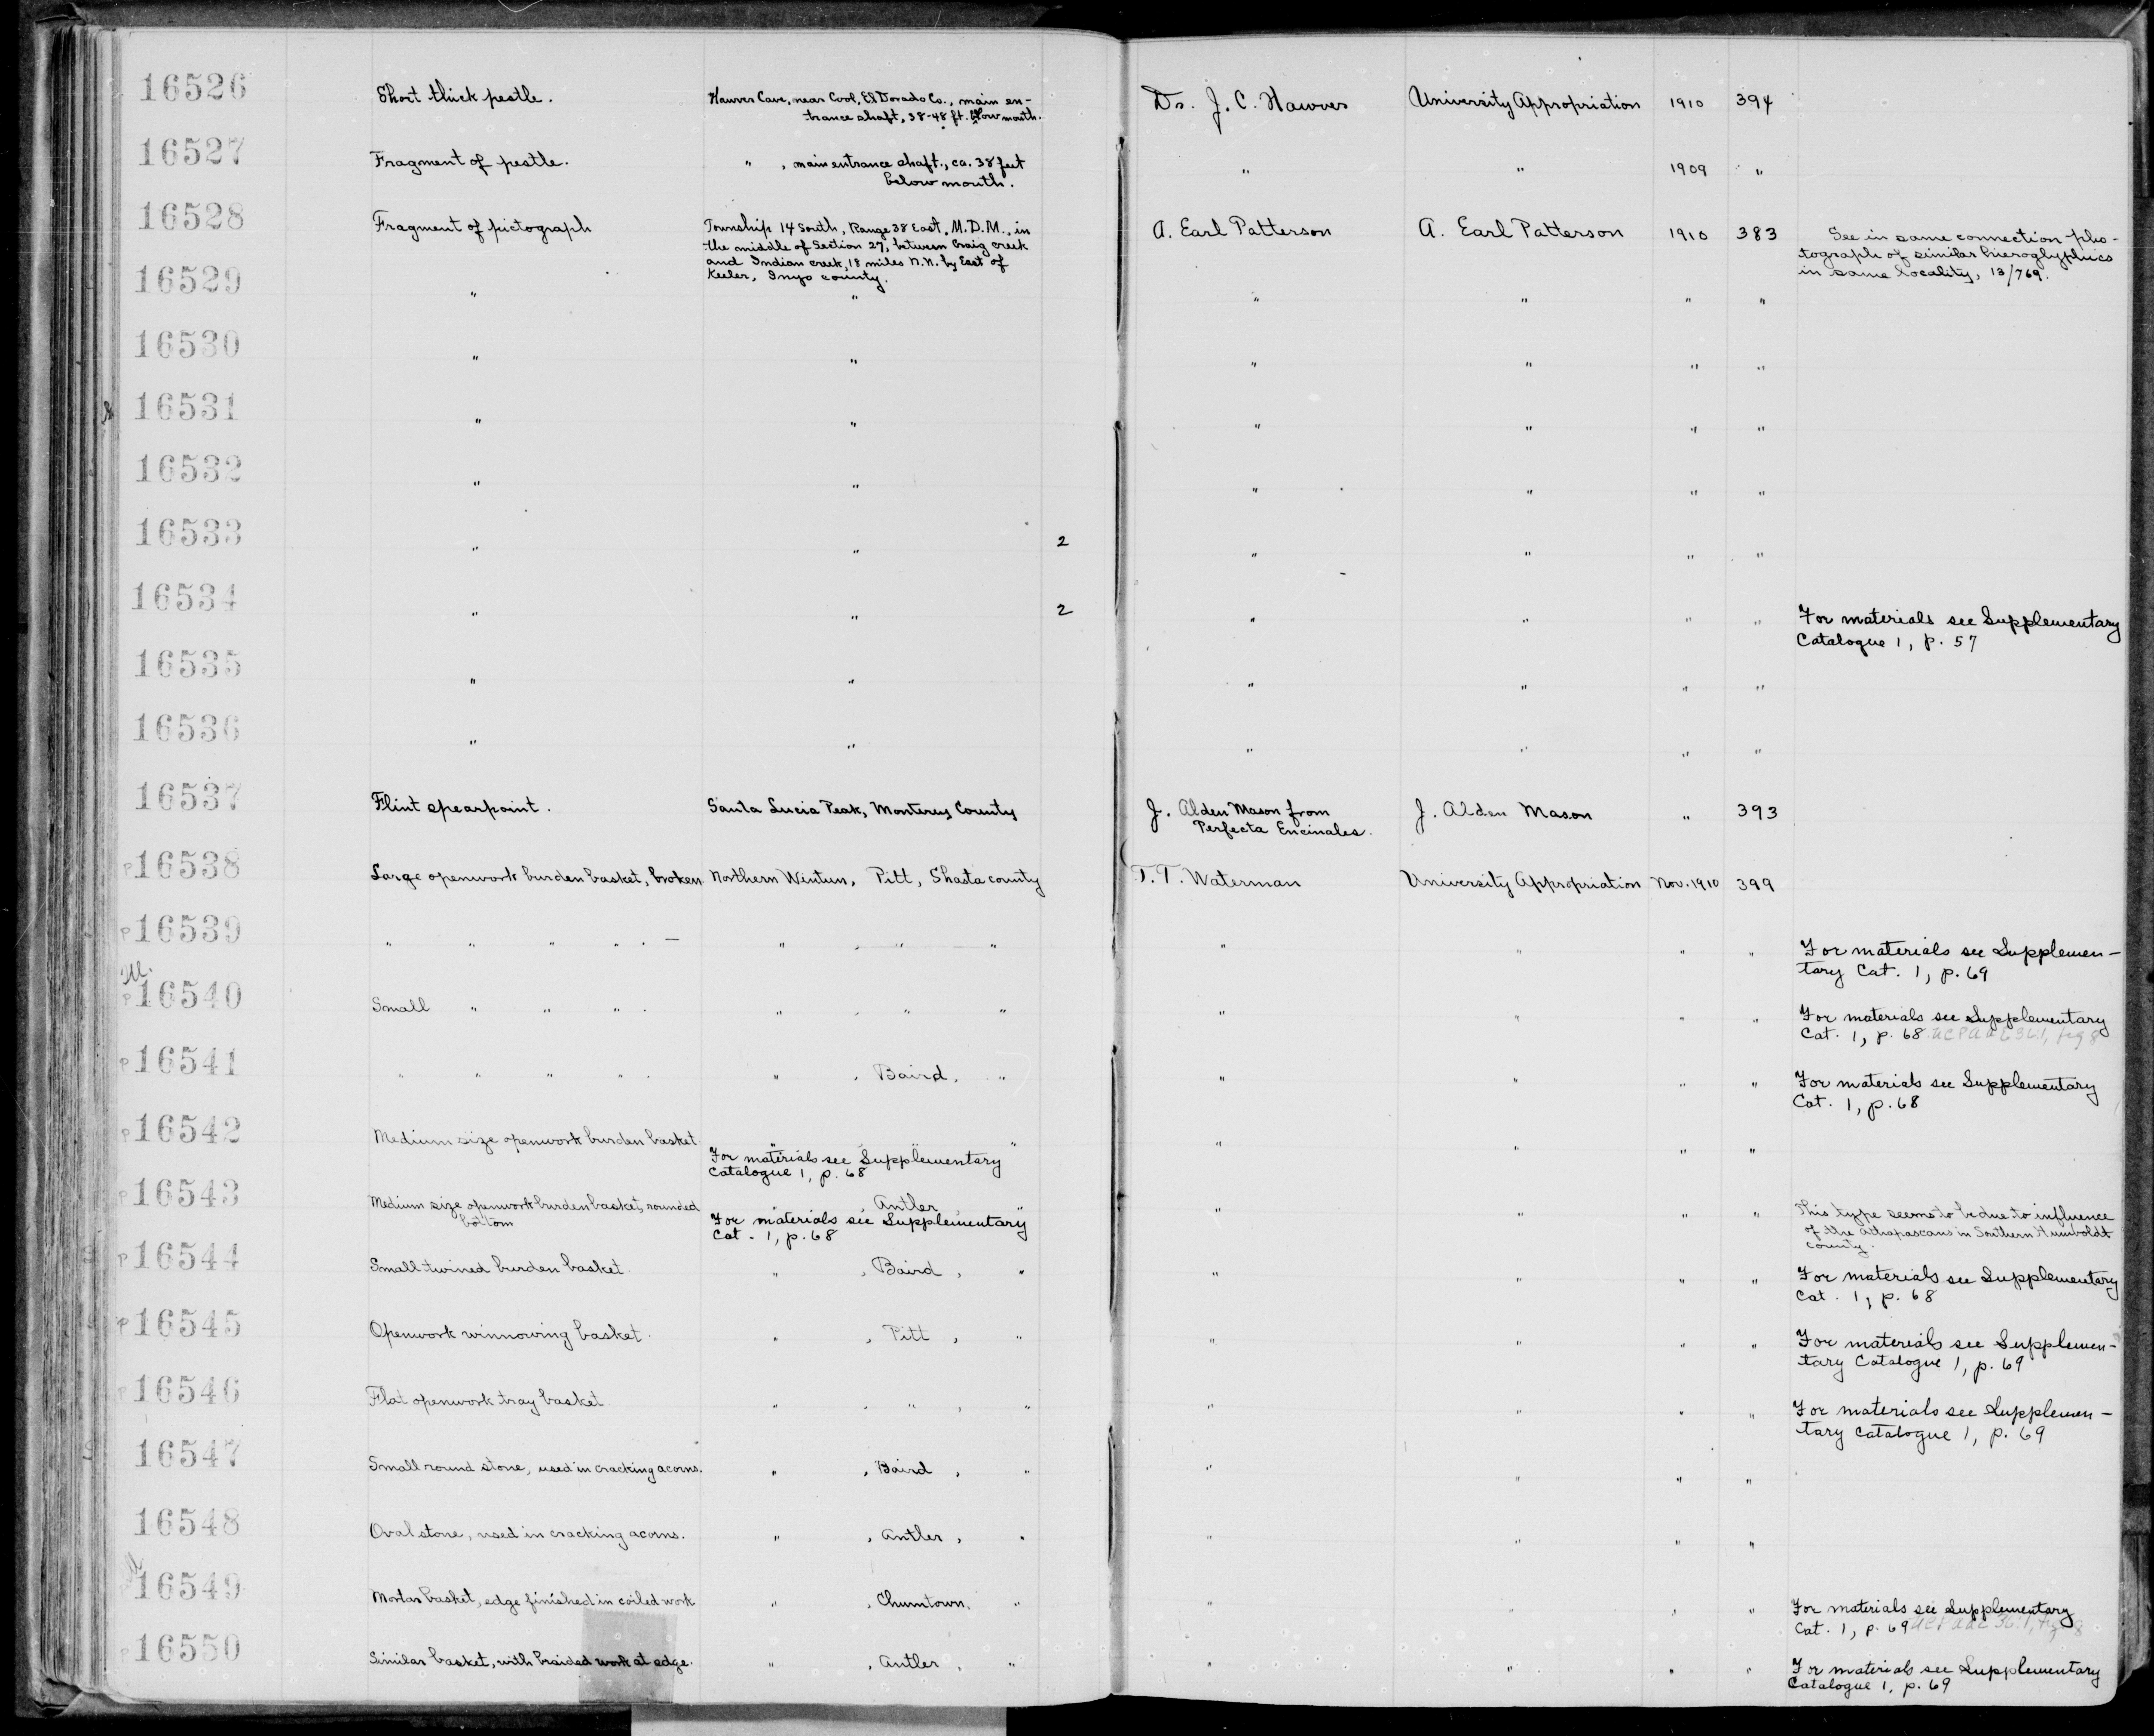 16526 Short thick pestle. Hawver Cave, near Cool, El Dorado Co., main en- Dr. J. C. Hawver University Appropriation 1910 394
trance shaft, 38-48 ft. below mouth.
16527 Fragment of pestle. " , main entrance shaft., ca. 38 feet " " 1909 "
below mouth.
16528 Fragment of pictograph Township 14 South, Range 38 East, M.D.M., in A. Earl Patterson A. Earl Patterson 1910 383 See in same connection pho-
the middle of Section 27, between Craig creek tograph of similar hieroglyphics
and Indian creek, 18 miles N.N. by East of in same locality, 13/769.
Keeler, Inyo county.
16529 " " " " " "
16530 " " " " " "
16531 " " " " " "
16532 " " " " " "
16533 " " 2 " " " "
16534 " " 2 " " " " For materials see Supplementary
Catalogue 1, p. 57
16535 " " " " " "
16536 " " " " " "
16537 Flint spearpoint. Santa Lucia Peak, Monterey County J. Alden Mason from J. Alden Mason " 393
Perfecta Encinales.
P16538 Large openwork burden basket, broken Northern Wintun, Pitt, Shasta county T. T. Waterman University Appropriation Nov. 1910 399
P16539 " " " " . — " , " — " " " " " For materials see Supplemen-
tary Cat. 1, p. 69
P16540 Small " " " . " , " " " " " " For materials see Supplementary
Cat. 1, p. 68 UCPAAE 36:1, fig 8
P16541 " " " " . " , Baird, " " " " " For materials see Supplementary
Cat. 1, p. 68
P16542 Medium size openwork burden basket " , " " " " " "
For materials see Supplementary
Catalogue 1, p. 68
P16543 Medium size openwork burden basket, rounded " , Antler, " " " " " This type seems to be due to influence
bottom For materials see Supplementary of the Athapascans in Southern Humboldt
Cat. 1, p. 68 county.
P16544 Small twined burden basket. " , Baird , " " " " " For materials see Supplementary
Cat. 1, p. 68
P16545 Openwork winnowing basket. " , Pitt , " " " " " For materials see Supplemen-
tary Catalogue 1, p. 69
P16546 Flat openwork tray basket " , " , " " " " " For materials see Supplemen-
tary Catalogue 1, p. 69
16547 Small round stone, used in cracking acorns. " , Baird , " " " " "
16548 Oval stone, used in cracking acorns. " , Antler , " " " " "
16549 Mortar basket, edge finished in coiled work " , Chumtown, " " " " " For materials see Supplementary
Cat. 1, p. 69 UCPAAE 36:1,
P16550 Similar basket, with braided work at edge. " , Antler , " " " " " For materials see Supplementary
Catalogue 1, p. 69